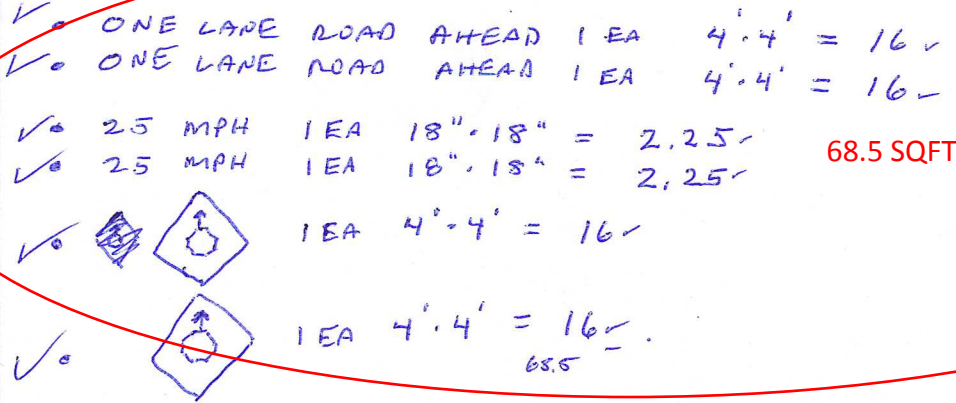 ONE LANE ROAD AHEAD 1 EA 4'·4' = 16
ONE LANE ROAD AHEAD 1 EA 4'·4' = 16
25 MPH 1 EA 18"·18" = 2.25
25 MPH 1 EA 18"·18" = 2.25
68.5 SQFT
1 EA 4'·4' = 16
1 EA 4'·4' = 16
68.5